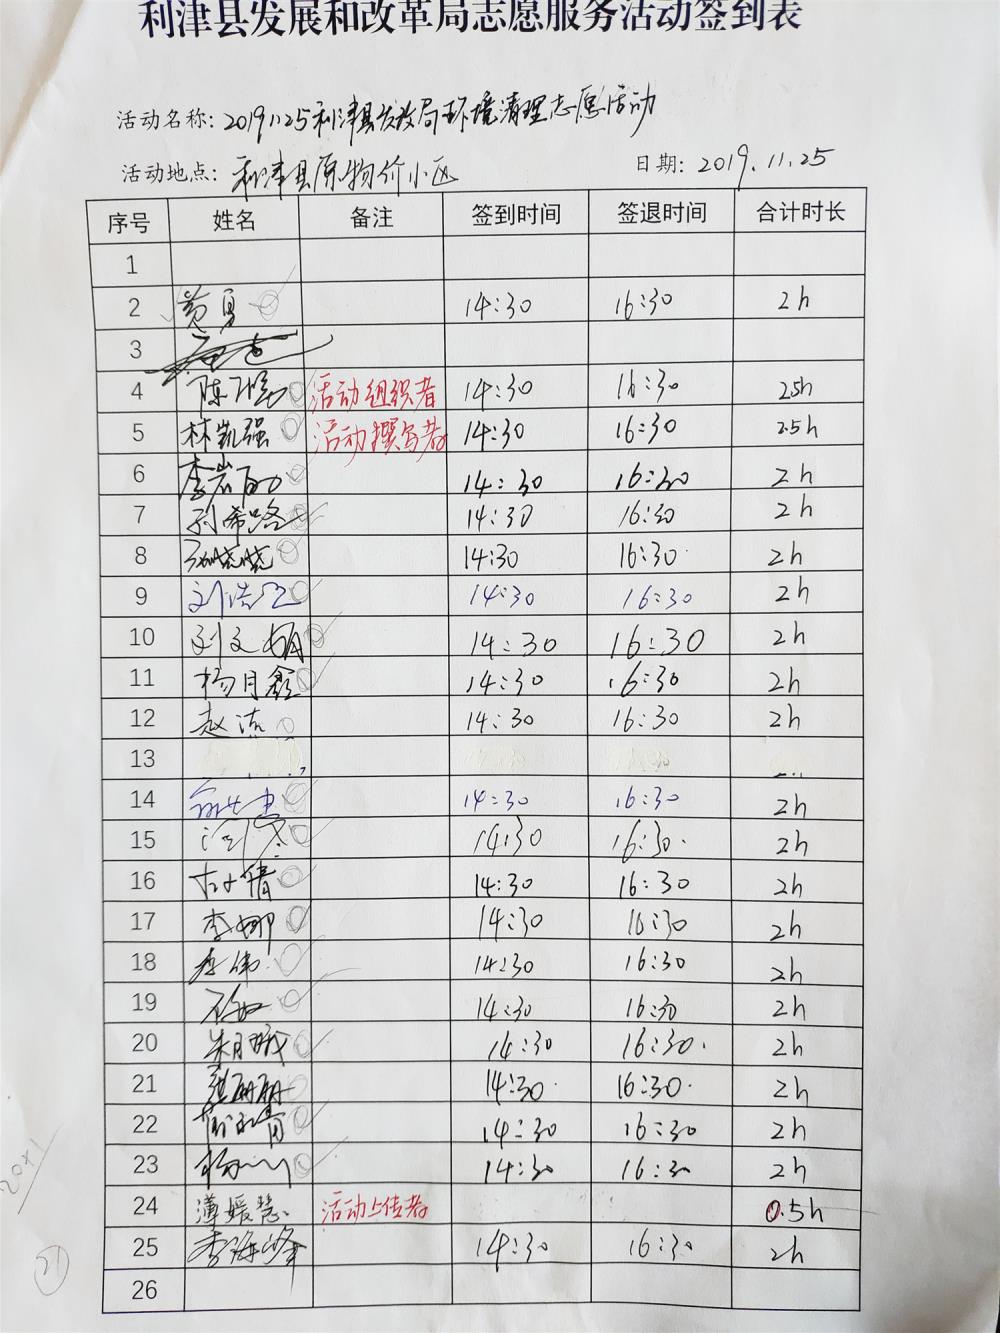 利津县发展和改革局志愿服务活动签到表
活动名称: 20191125利津县发改局环境清理志愿活动
活动地点: 利津县原物价小区 日期: 2019.11.25
序号 姓名 备注 签到时间 签退时间 合计时长
1
2 黄勇 14:30 16:30 2h
3
4 活动组织者 14:30 16:30 2.5h
5 林凯强 活动撰写者 14:30 16:30 2.5h
6 14:30 16:30 2h
7 14:30 16:30 2h
8 14:30 16:30 2h
9 14:30 16:30 2h
10 刘文娟 14:30 16:30 2h
11 杨月鑫 14:30 16:30 2h
12 赵洁 14:30 16:30 2h
13
14 14:30 16:30 2h
15 14:30 16:30 2h
16 14:30 16:30 2h
17 李娜 14:30 16:30 2h
18 李伟 14:30 16:30 2h
19 14:30 16:30 2h
20 14:30 16:30 2h
21 14:30 16:30 2h
22 14:30 16:30 2h
23 14:30 16:30 2h
24 薄媛慧 活动上传者 0.5h
25 李海峰 14:30 16:30 2h
26
20+1
21